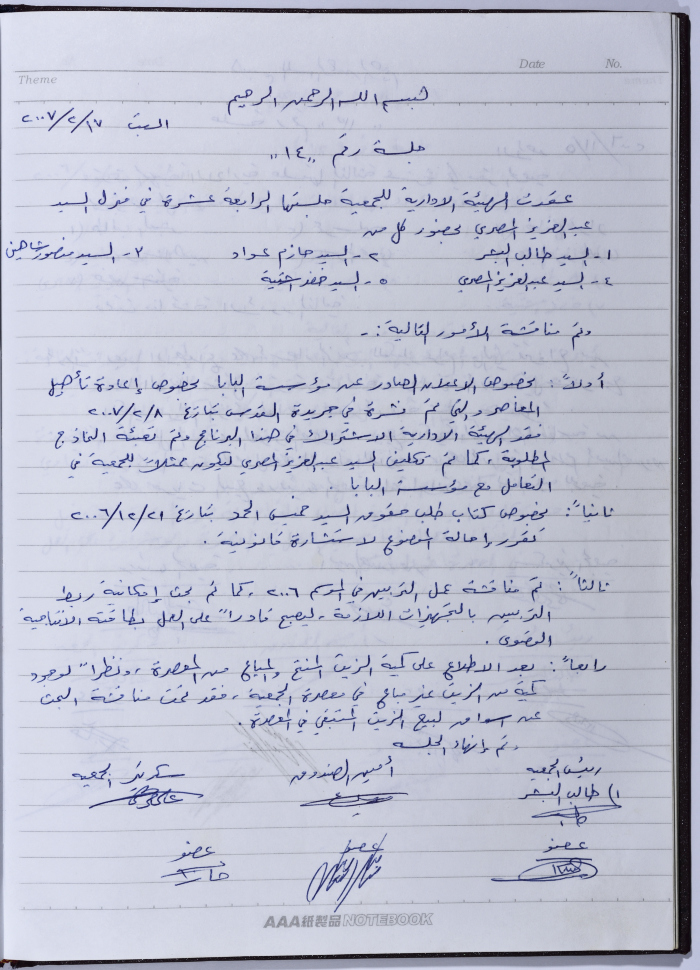 Theme Date No.
بسم الله الرحمن الرحيم
السبت ٢٠٠٧/٢/١٧
جلسة رقم "١٤"
عقدت الهيئة الادارية للجمعية جلستها الرابعة عشرة في منزل السيد
عبد العزيز المصري بحضور كل من
١- السيد طالب البشر ٢- السيد حازم عواد ٣- السيد منصور شاهين
٤- السيد عبد العزيز المصري ٥- السيد
وتم مناقشة الأمور التالية :-
أولاً : بخصوص الاعلان الصادر عن مؤسسة البابا بخصوص إعادة تأهيل
المعاصر والتي تم نشرة في جريدة القدس بتاريخ ٢٠٠٧/٢/٨
فقد الهيئة الادارية الاشتراك في هذا البرنامج وتم تعبئة النماذج
المطلوبة ، كما تم تكليف السيد عبد العزيز المصري ليكون ممثلاً للجمعية في
التعامل مع مؤسسة البابا .
ثانياً : بخصوص كتاب طلب حقوق السيد خميس الحمد بتاريخ ٢٠٠٦/١٢/٢١
تقرر إحالة الموضوع لاستشارة قانونية .
ثالثاً : تم مناقشة عمل التربين في الموسم ٢٠٠٦ ، كما تم بحث إمكانية ربط
التربين بالتجهيزات اللازمة ، ليصبح قادراً على العمل بطاقته الانتاجية
القصوى .
رابعاً : بعد الاطلاع على كمية الزيت المنتج والمباع من المعصرة ، ونظراً لوجود
كمية من الزيت غير مباع في معصرة الجمعية ، فقد تمت مناقشة البحث
عن اسواق لبيع الزيت المتبقي في المعصرة .
وتم إنهاء الجلسه
رئيس الجمعيه أمين الصندوق سكرتير الجمعيه
طالب البشر
عضو عضو عضو
AAA紙製品 NOTEBOOK